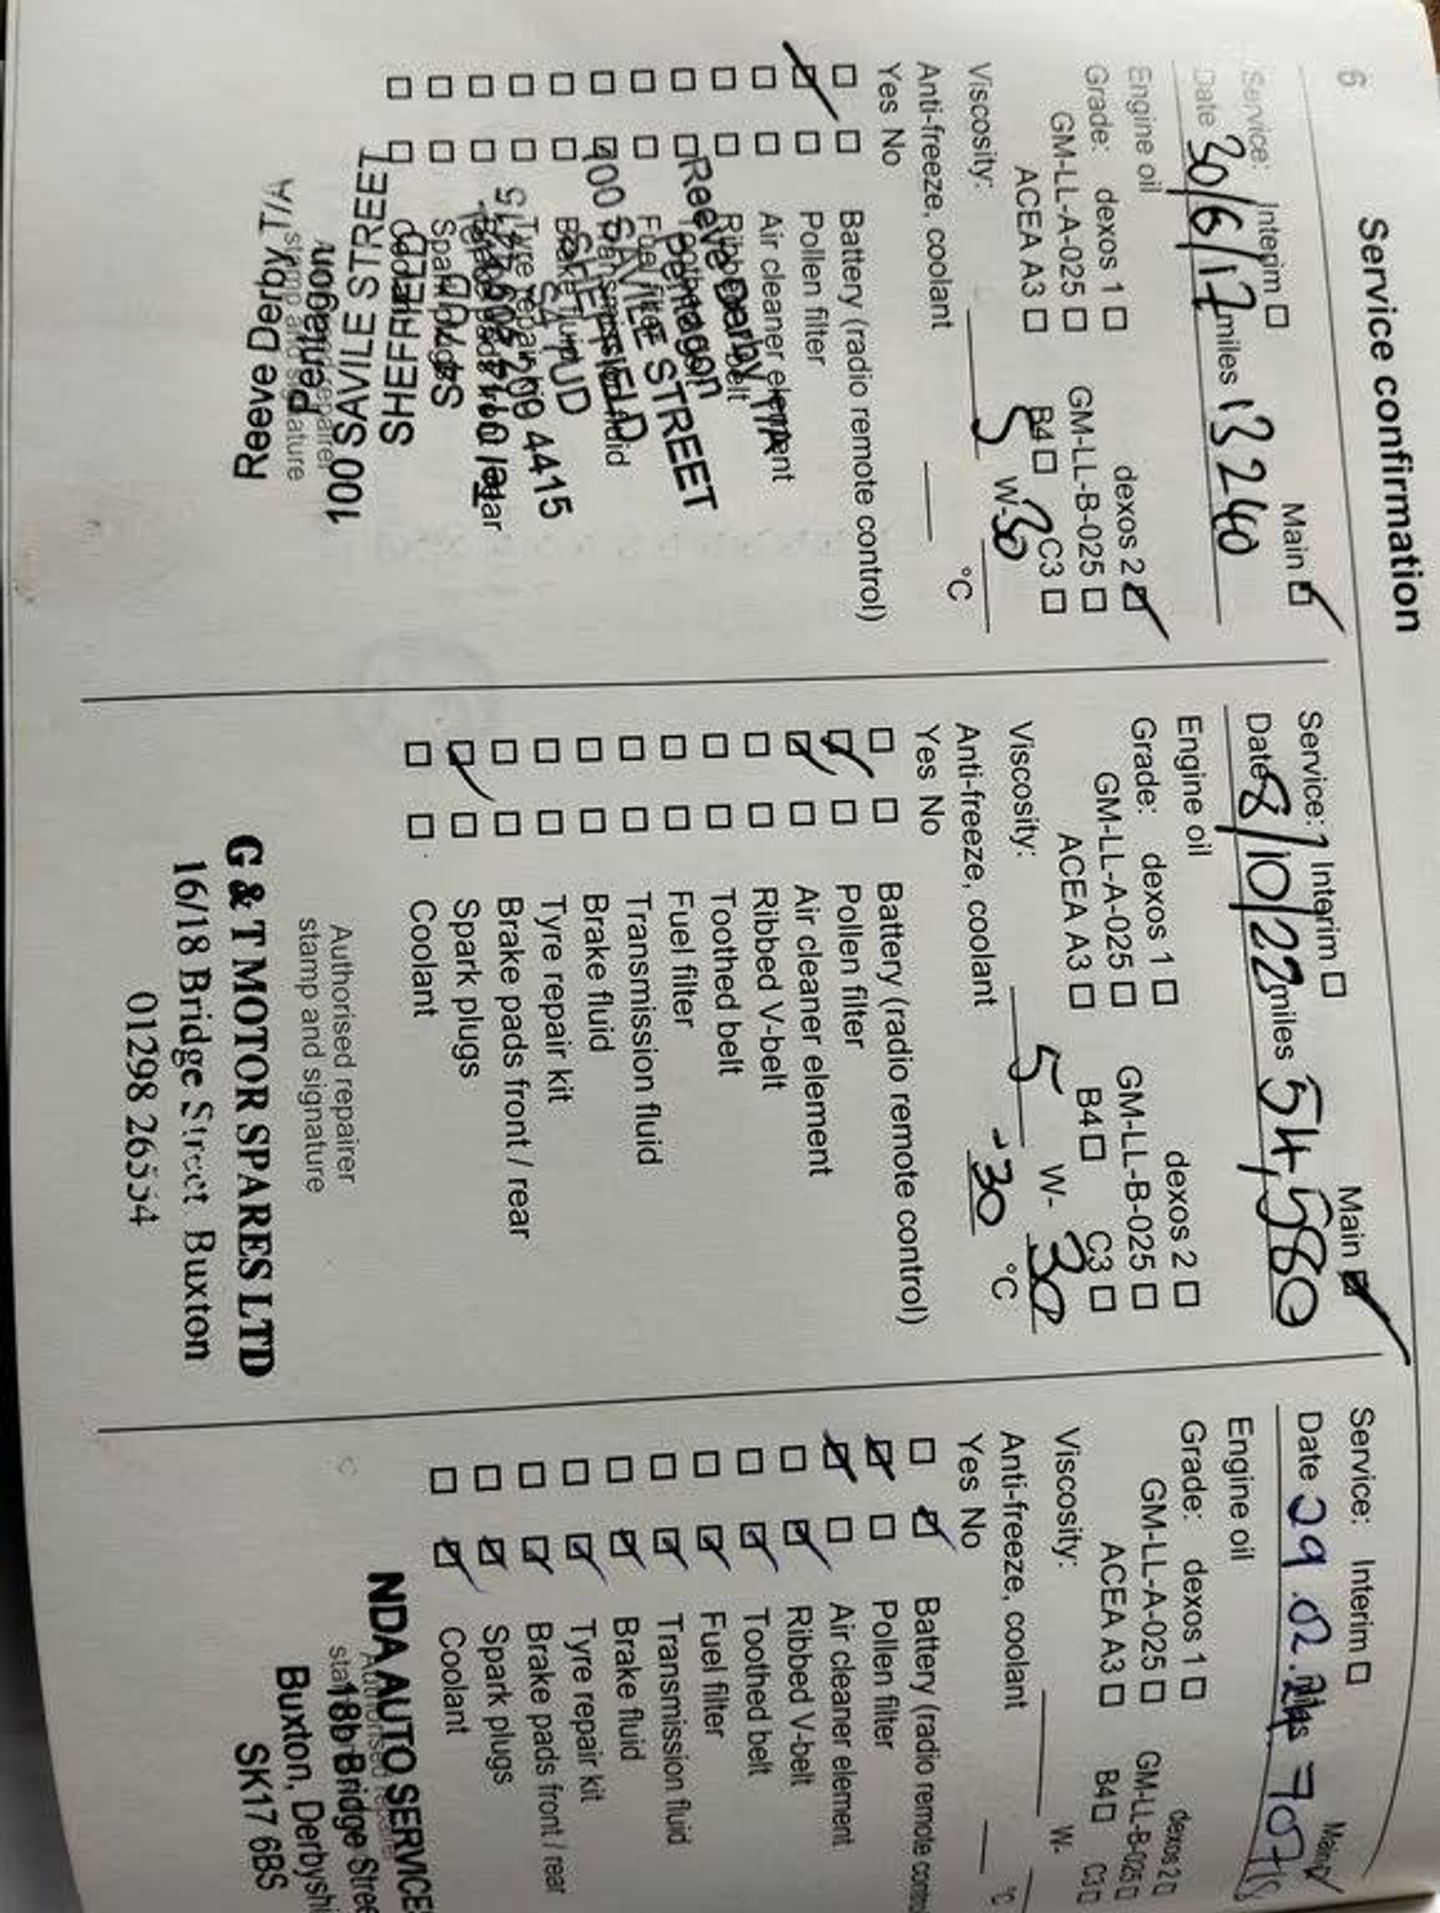 6
Service confirmation
Service: Interim Main
Date 30/6/17 miles 13240
Engine oil
Grade: dexos 1 dexos 2
GM-LL-A-025 GM-LL-B-025
ACEA A3 B4 C3
Viscosity: 5 W-30
Anti-freeze, coolant °C
Yes No
Battery (radio remote control)
Pollen filter
Air cleaner element
Ribbed V-belt
Reeve Derby T/A
Pentagon
100 SAVILE STREET
SHEFFIELD
S4 7UD
Spark plugs
S4 7UD
SHEFFIELD
100 SAVILE STREET
Pentagon
stamp and signature
Reeve Derby T/A
Service: Interim Main
Date 8/10/22 miles 54,580
Engine oil
Grade: dexos 1 dexos 2
GM-LL-A-025 GM-LL-B-025
ACEA A3 B4 C3
Viscosity: 5 W- 30
Anti-freeze, coolant -30 °C
Yes No
Battery (radio remote control)
Pollen filter
Air cleaner element
Ribbed V-belt
Toothed belt
Fuel filter
Transmission fluid
Brake fluid
Tyre repair kit
Brake pads front / rear
Spark plugs
Coolant
Authorised repairer
stamp and signature
G & T MOTOR SPARES LTD
16/18 Bridge Street Buxton
01298 26554
Service: Interim Main
Date 29.02.24
Engine oil
Grade: dexos 1 dexos 2
GM-LL-A-025 GM-LL-B-025
ACEA A3 B4 C3
Viscosity: W-
Anti-freeze, coolant °C
Yes No
Battery (radio remote
Pollen filter
Air cleaner element
Ribbed V-belt
Toothed belt
Fuel filter
Transmission fluid
Brake fluid
Tyre repair kit
Brake pads front / rear
Spark plugs
Coolant
NDA AUTO SERVICE
18b Bridge Stree
Buxton, Derbyshi
SK17 6BS